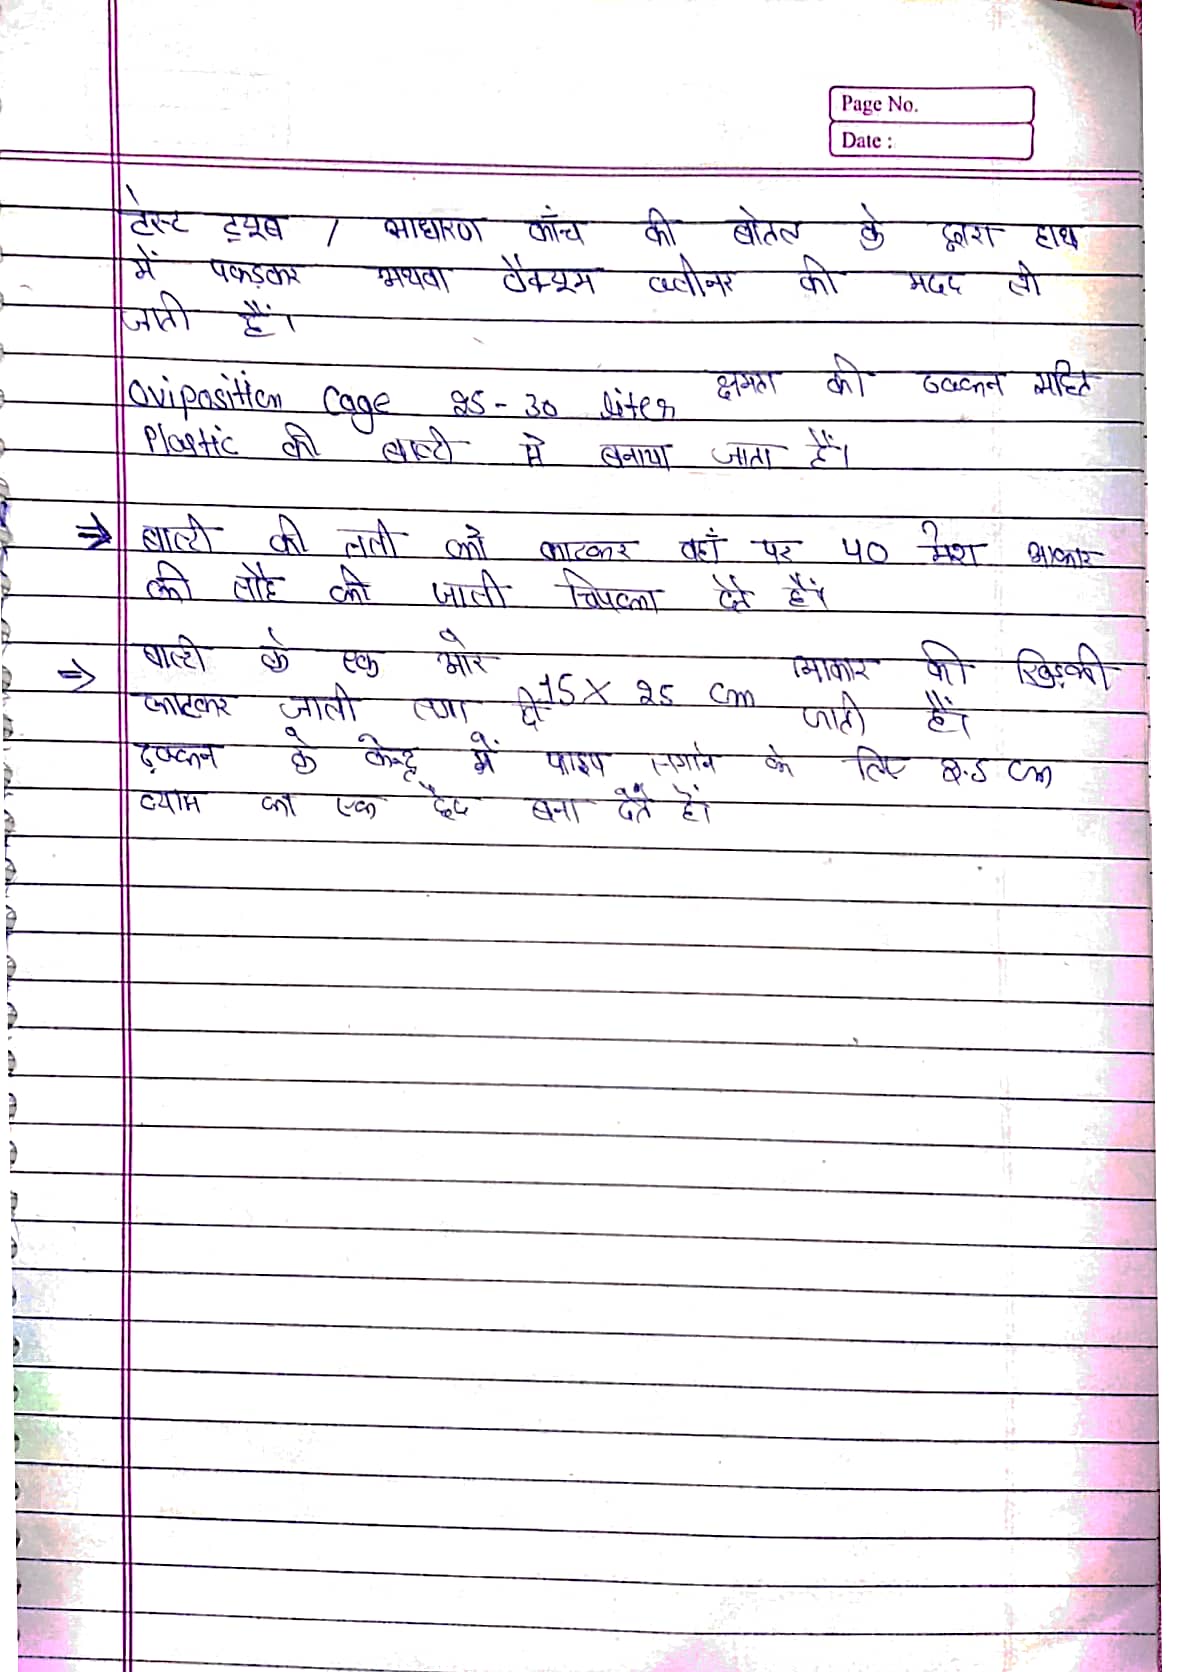 Page No.
Date :
टेस्ट ट्यूब / साधारण काँच की बोतल के द्वारा हाथ
में पकड़कर अथवा वैक्यूम क्लीनर की मदद ली
जाती हैं।
Oviposition Cage 25-30 liter क्षमता की ढक्कन सहित
Plastic की बाल्टी से बनाया जाता हैं।
⇒ बाल्टी की तली को काटकर वहाँ पर 40 मेश आकार
की लौह की जाली चिपका देते हैं।
⇒ बाल्टी के एक ओर 15 X 25 cm आकार की खिड़की
काटकर जाली लगा दी जाती हैं।
ढ़क्कन के केन्द्र में पाइप लगाने के लिए 2.5 cm
व्यास का एक छेद बना देते हैं।